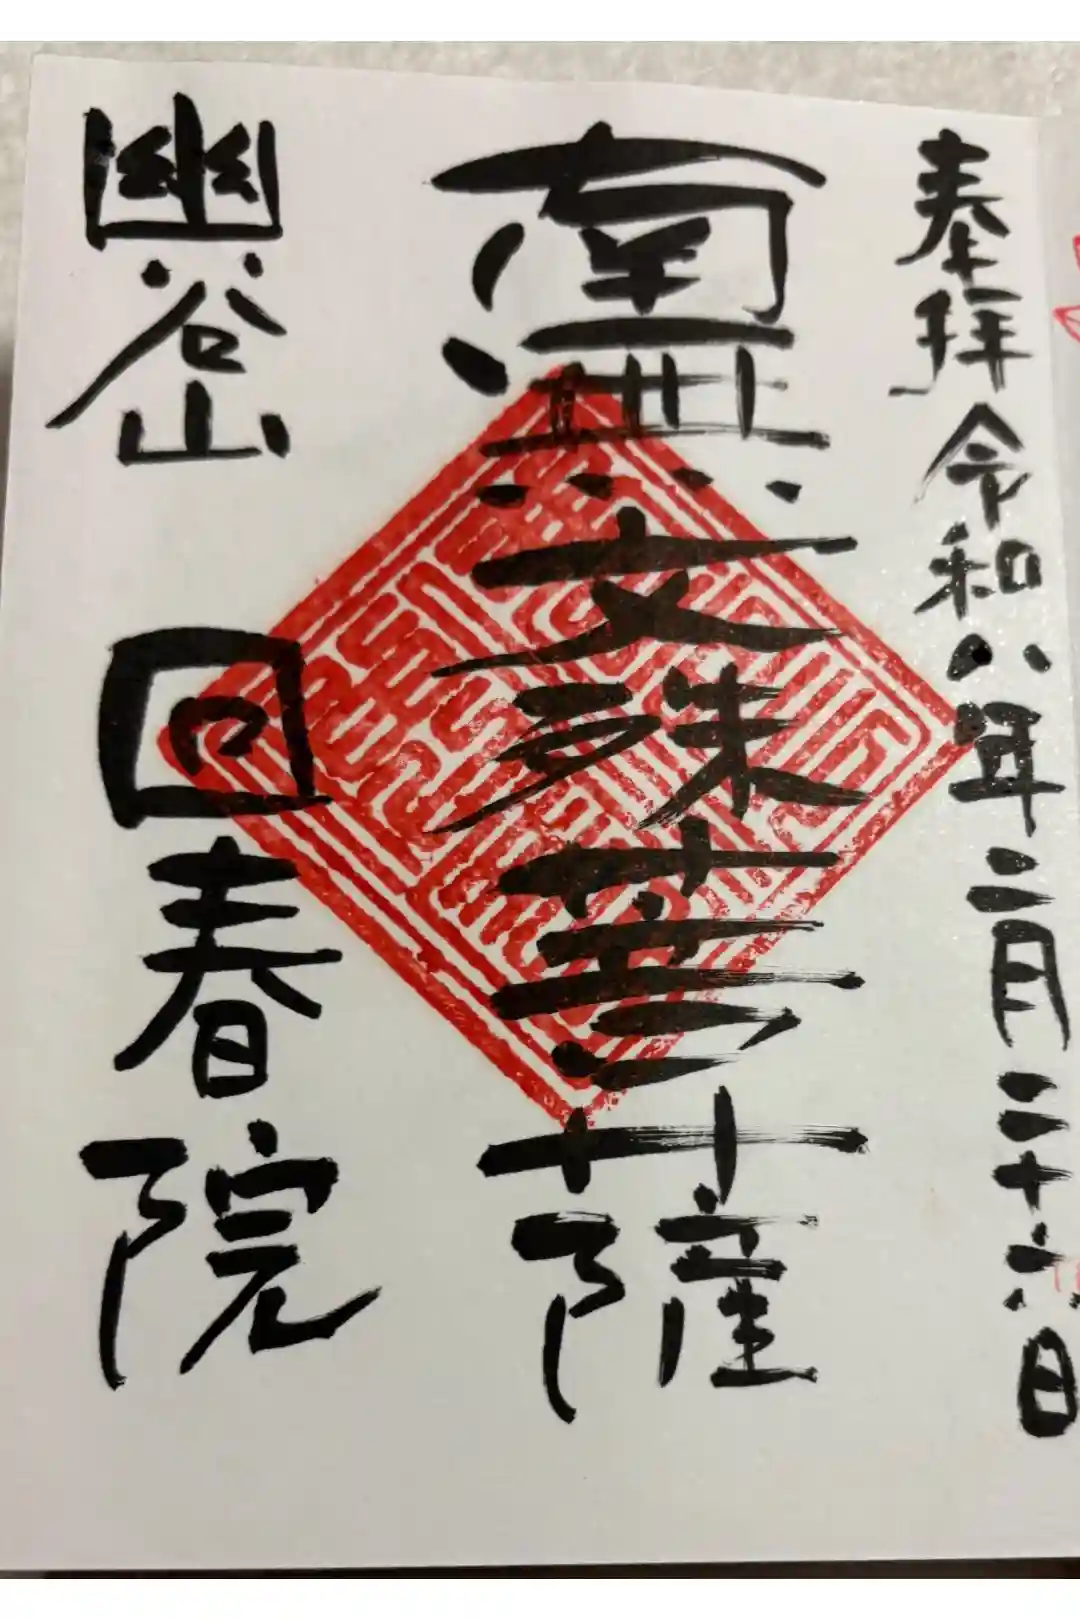 奉拝 令和八年二月二十六日
南無文殊菩薩
幽谷山 回春院